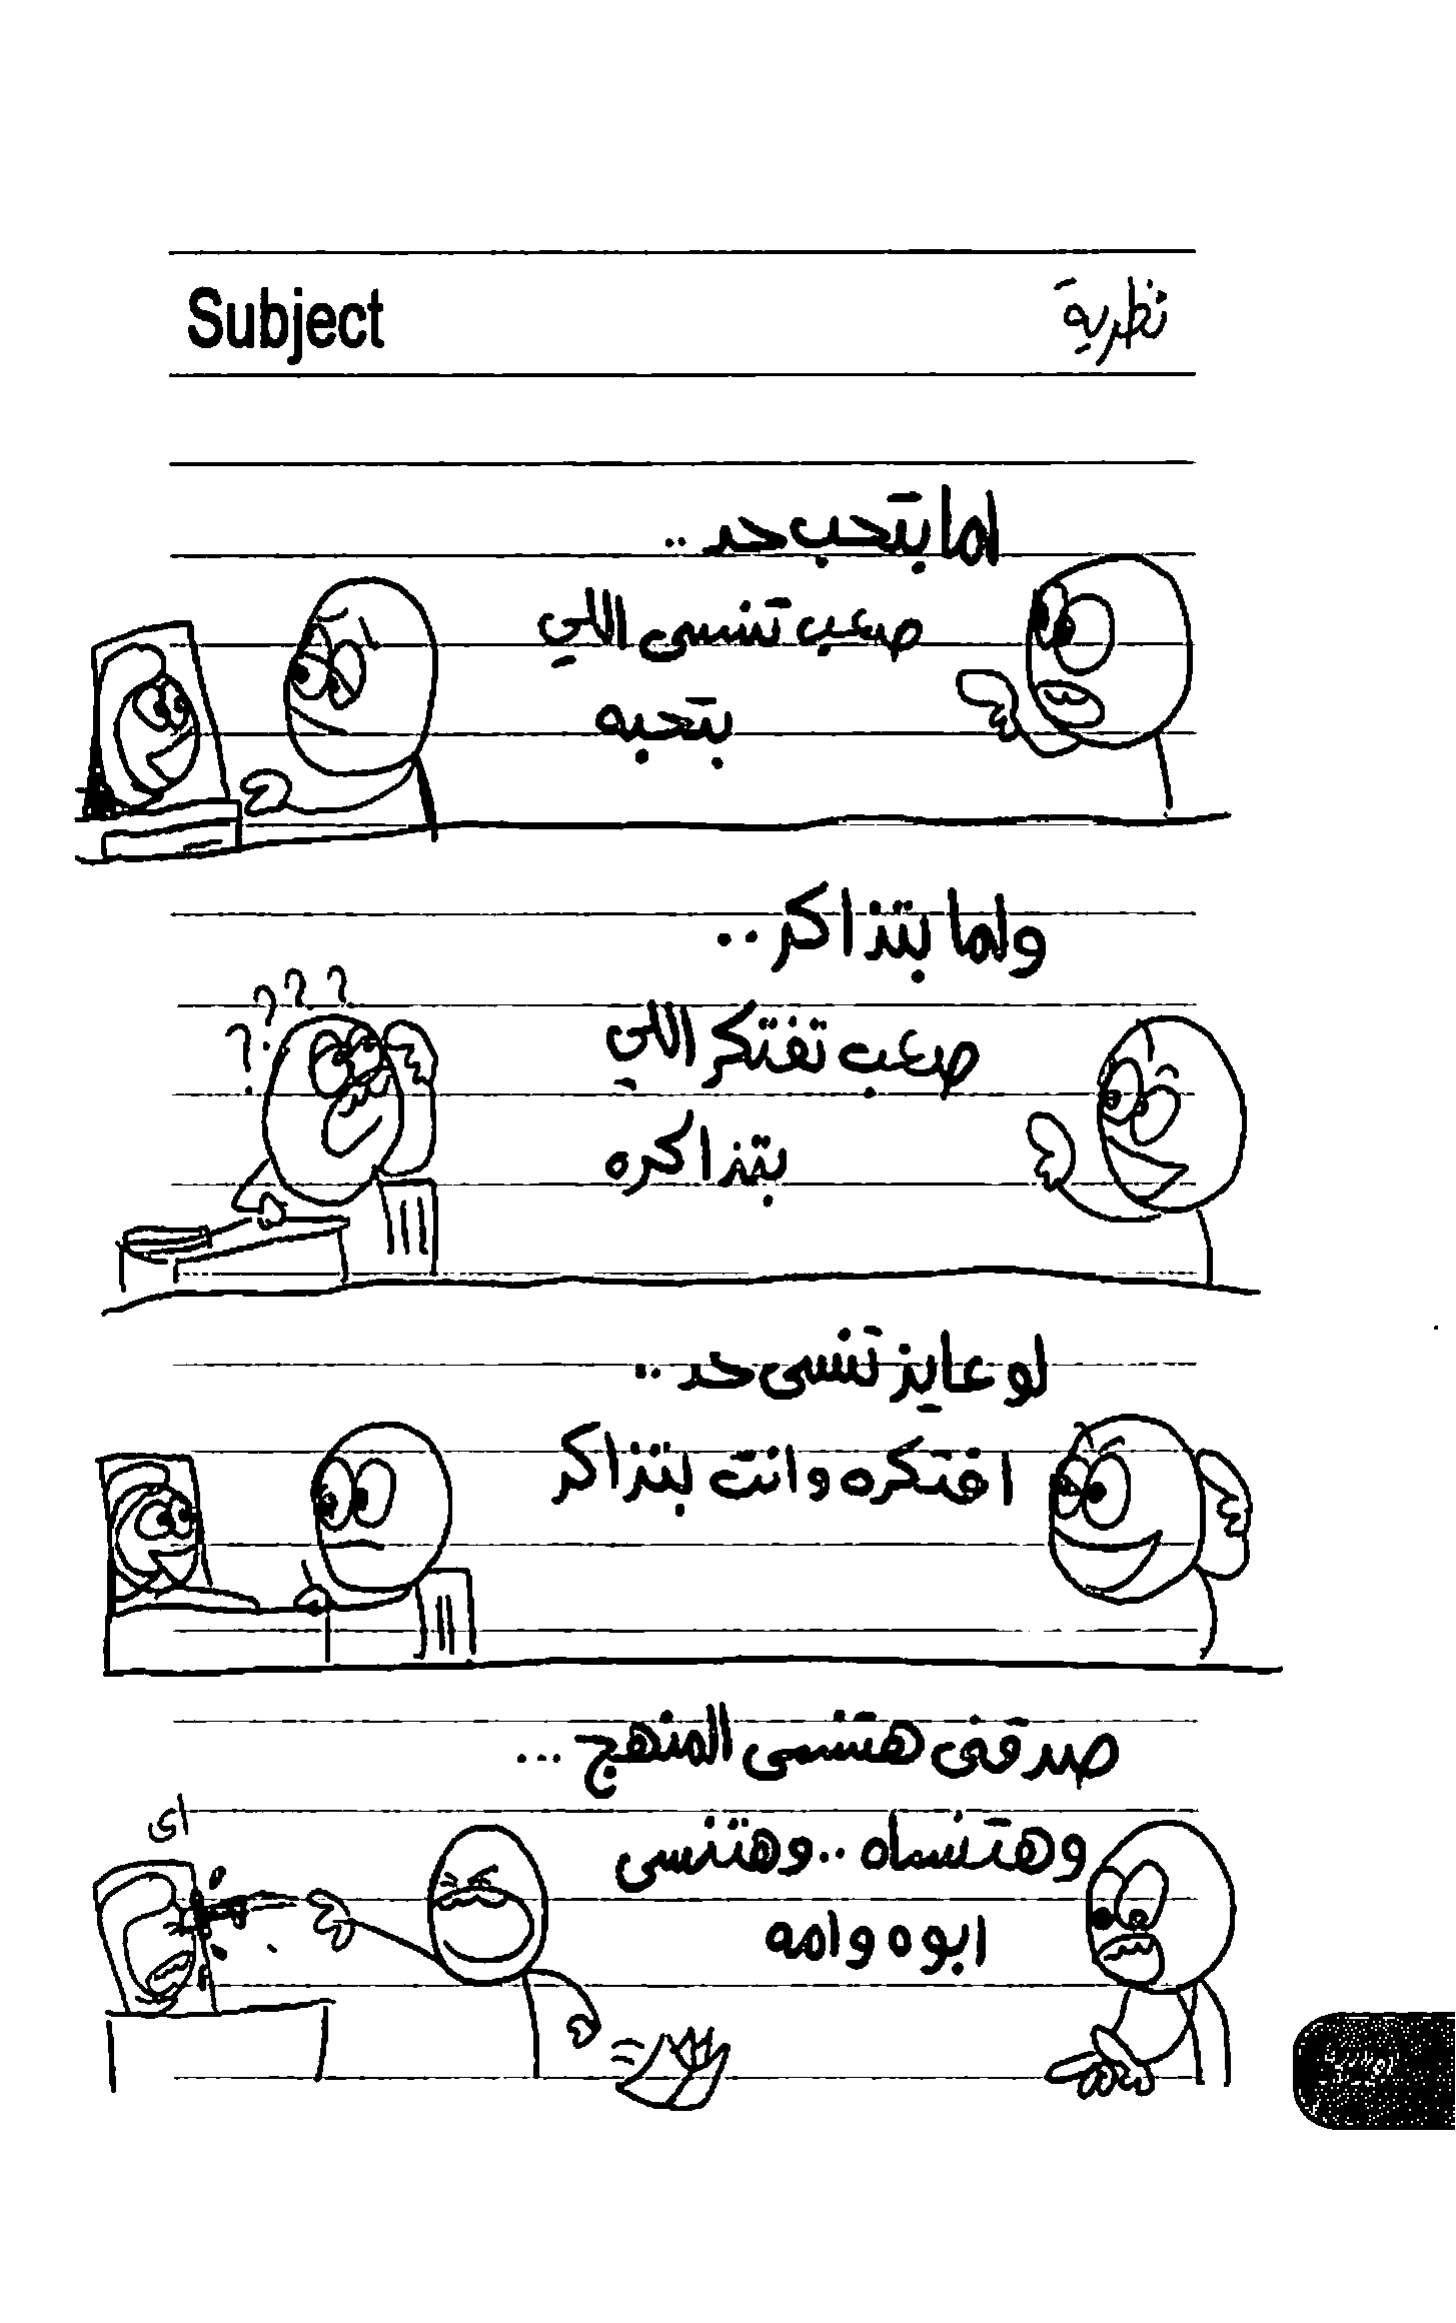 Subject نظرية
اما بتحب حد ..
صعب تنسى اللي
بتحبه
واما بتذاكر ..
صعب تفتكر اللي
بتذاكره
? ? ? ?
لو عايز تنسى حد ..
افتكره وانت بتذاكر
صدقنى هتنسى المنهج ...
وهتنساه .. وهتنسى
ابوه وامه
اى